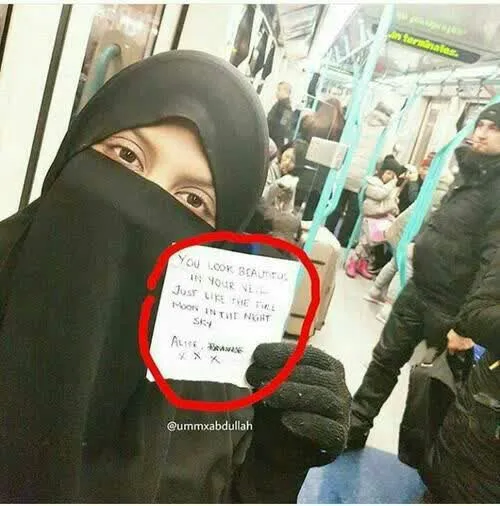 in terminates.
YOU LOOK BEAUTIFUL
IN YOUR VEIL
JUST LIKE THE FULL
MOON IN THE NIGHT
SKY
ALICE,
X X X
@ummxabdullah